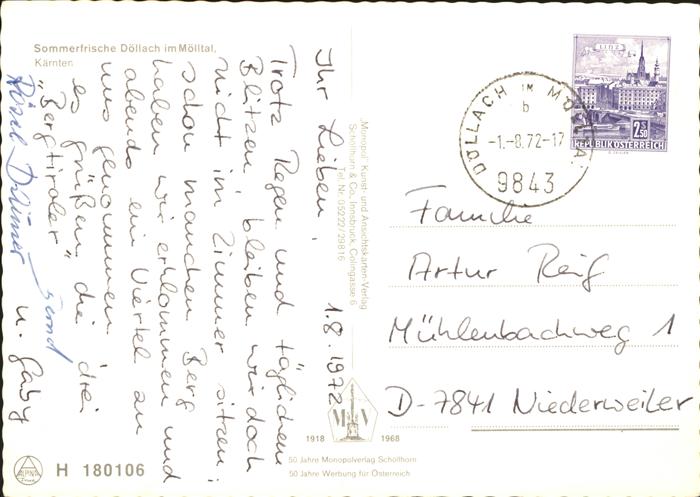 Sommerfrische Döllach im Mölltal,
Kärnten
Ihr Lieben, 1.8.1972
Trotz Regen und täglichen
Blitzen, bleiben wir doch
nicht im Zimmer sitzen;
schon manchen Berg
haben wir erklommen und
abends ein Viertel zu
uns genommen.
es grüßen die drei
"Bergtiroler"
Bernd
u. Gaby
"Monopol" Kunst- und Ansichtskarten-Verlag
Schöllhorn & Co., Innsbruck, Colingasse 6
Tel. Nr. 05222/29816
LINZ
2.50
REPUBLIK ÖSTERREICH
DÖLLACH IM MÖLLTAL
b
-1.-8.72-17
9843
Familie
Artur Reif
Mühlenbachweg 1
D-7841 Niederweiler
M V
1918 1968
50 Jahre Monopolverlag Schöllhorn
50 Jahre Werbung für Österreich
ALPINA
H 180106